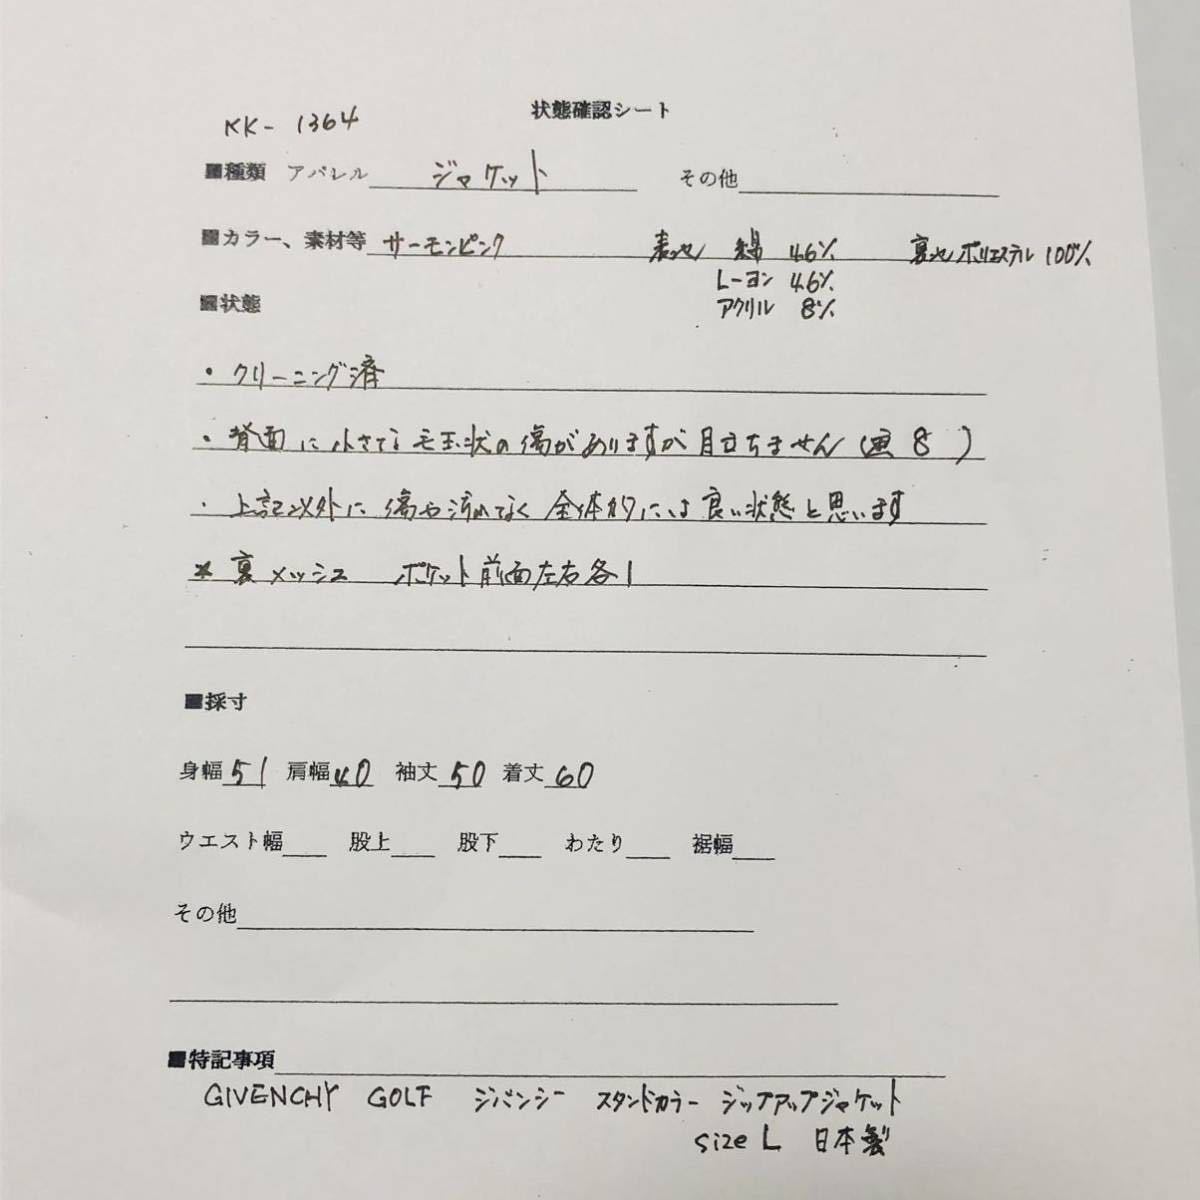 状態確認シート
KK-1364
■種類 アパレル ジャケット その他
■カラー、素材等 サーモンピンク 表地 綿 46% 裏地 ポリエステル 100%
レーヨン 46%
アクリル 8%
■状態
・クリーニング済
・背面に小さな毛玉状の傷がありますが目立ちません(画8)
・上記以外に傷や汚れなく全体的には良い状態と思います
*裏メッシュ ポケット前面左右各1
■採寸
身幅51 肩幅40 袖丈50 着丈60
ウエスト幅 股上 股下 わたり 裾幅
その他
■特記事項
GIVENCHY GOLF ジバンシー スタンドカラー ジップアップジャケット
size L 日本製